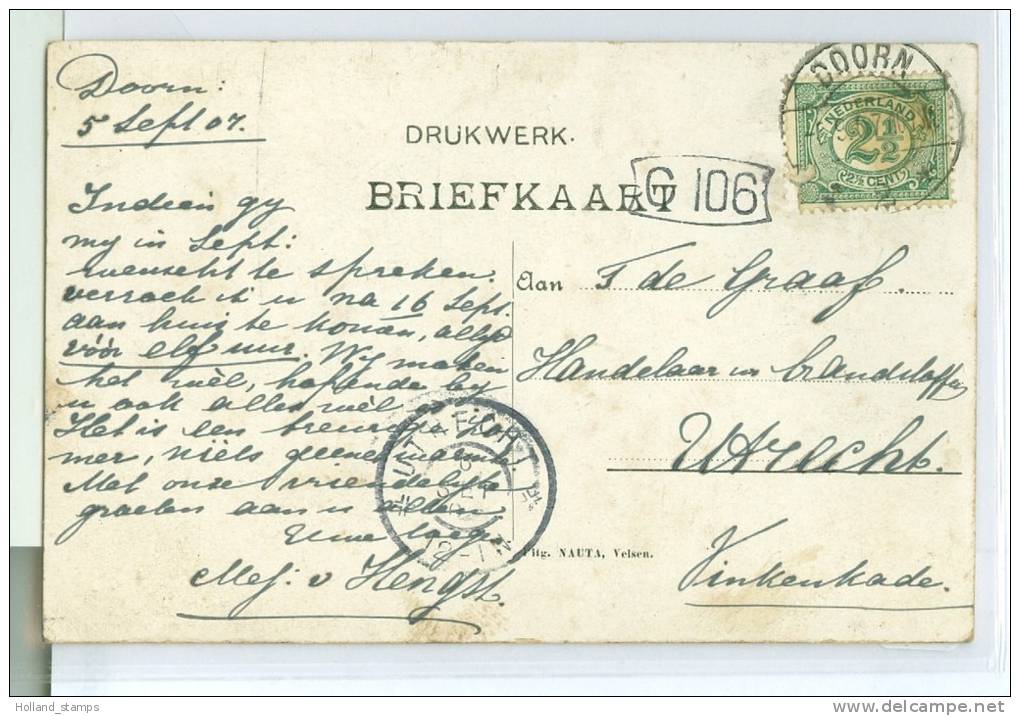 Doorn:
5 Sept 07.
DRUKWERK.
BRIEFKAART
G 106
DOORN
NEDERLAND
2½
2½ CENT
Indien gy
my in Sept:
wenscht te spreken.
verzoek ik u na 16 Sept.
aan huis te komen,
vóór elf uur. Wy maken
het wèl, hopende by
u ook alles wèl
Het is een treurige
mer, niets
Met onze vriendelijke
groeten aan u allen
Uwe
Mej: v Hengst.
Aan F de Graaf.
Handelaar in brandstoffen
Utrecht.
Vinkenkade.
UTRECHT
5 SEP
12-1N
Uitg. NAUTA, Velsen.
Holland_stamps
delcampe.net